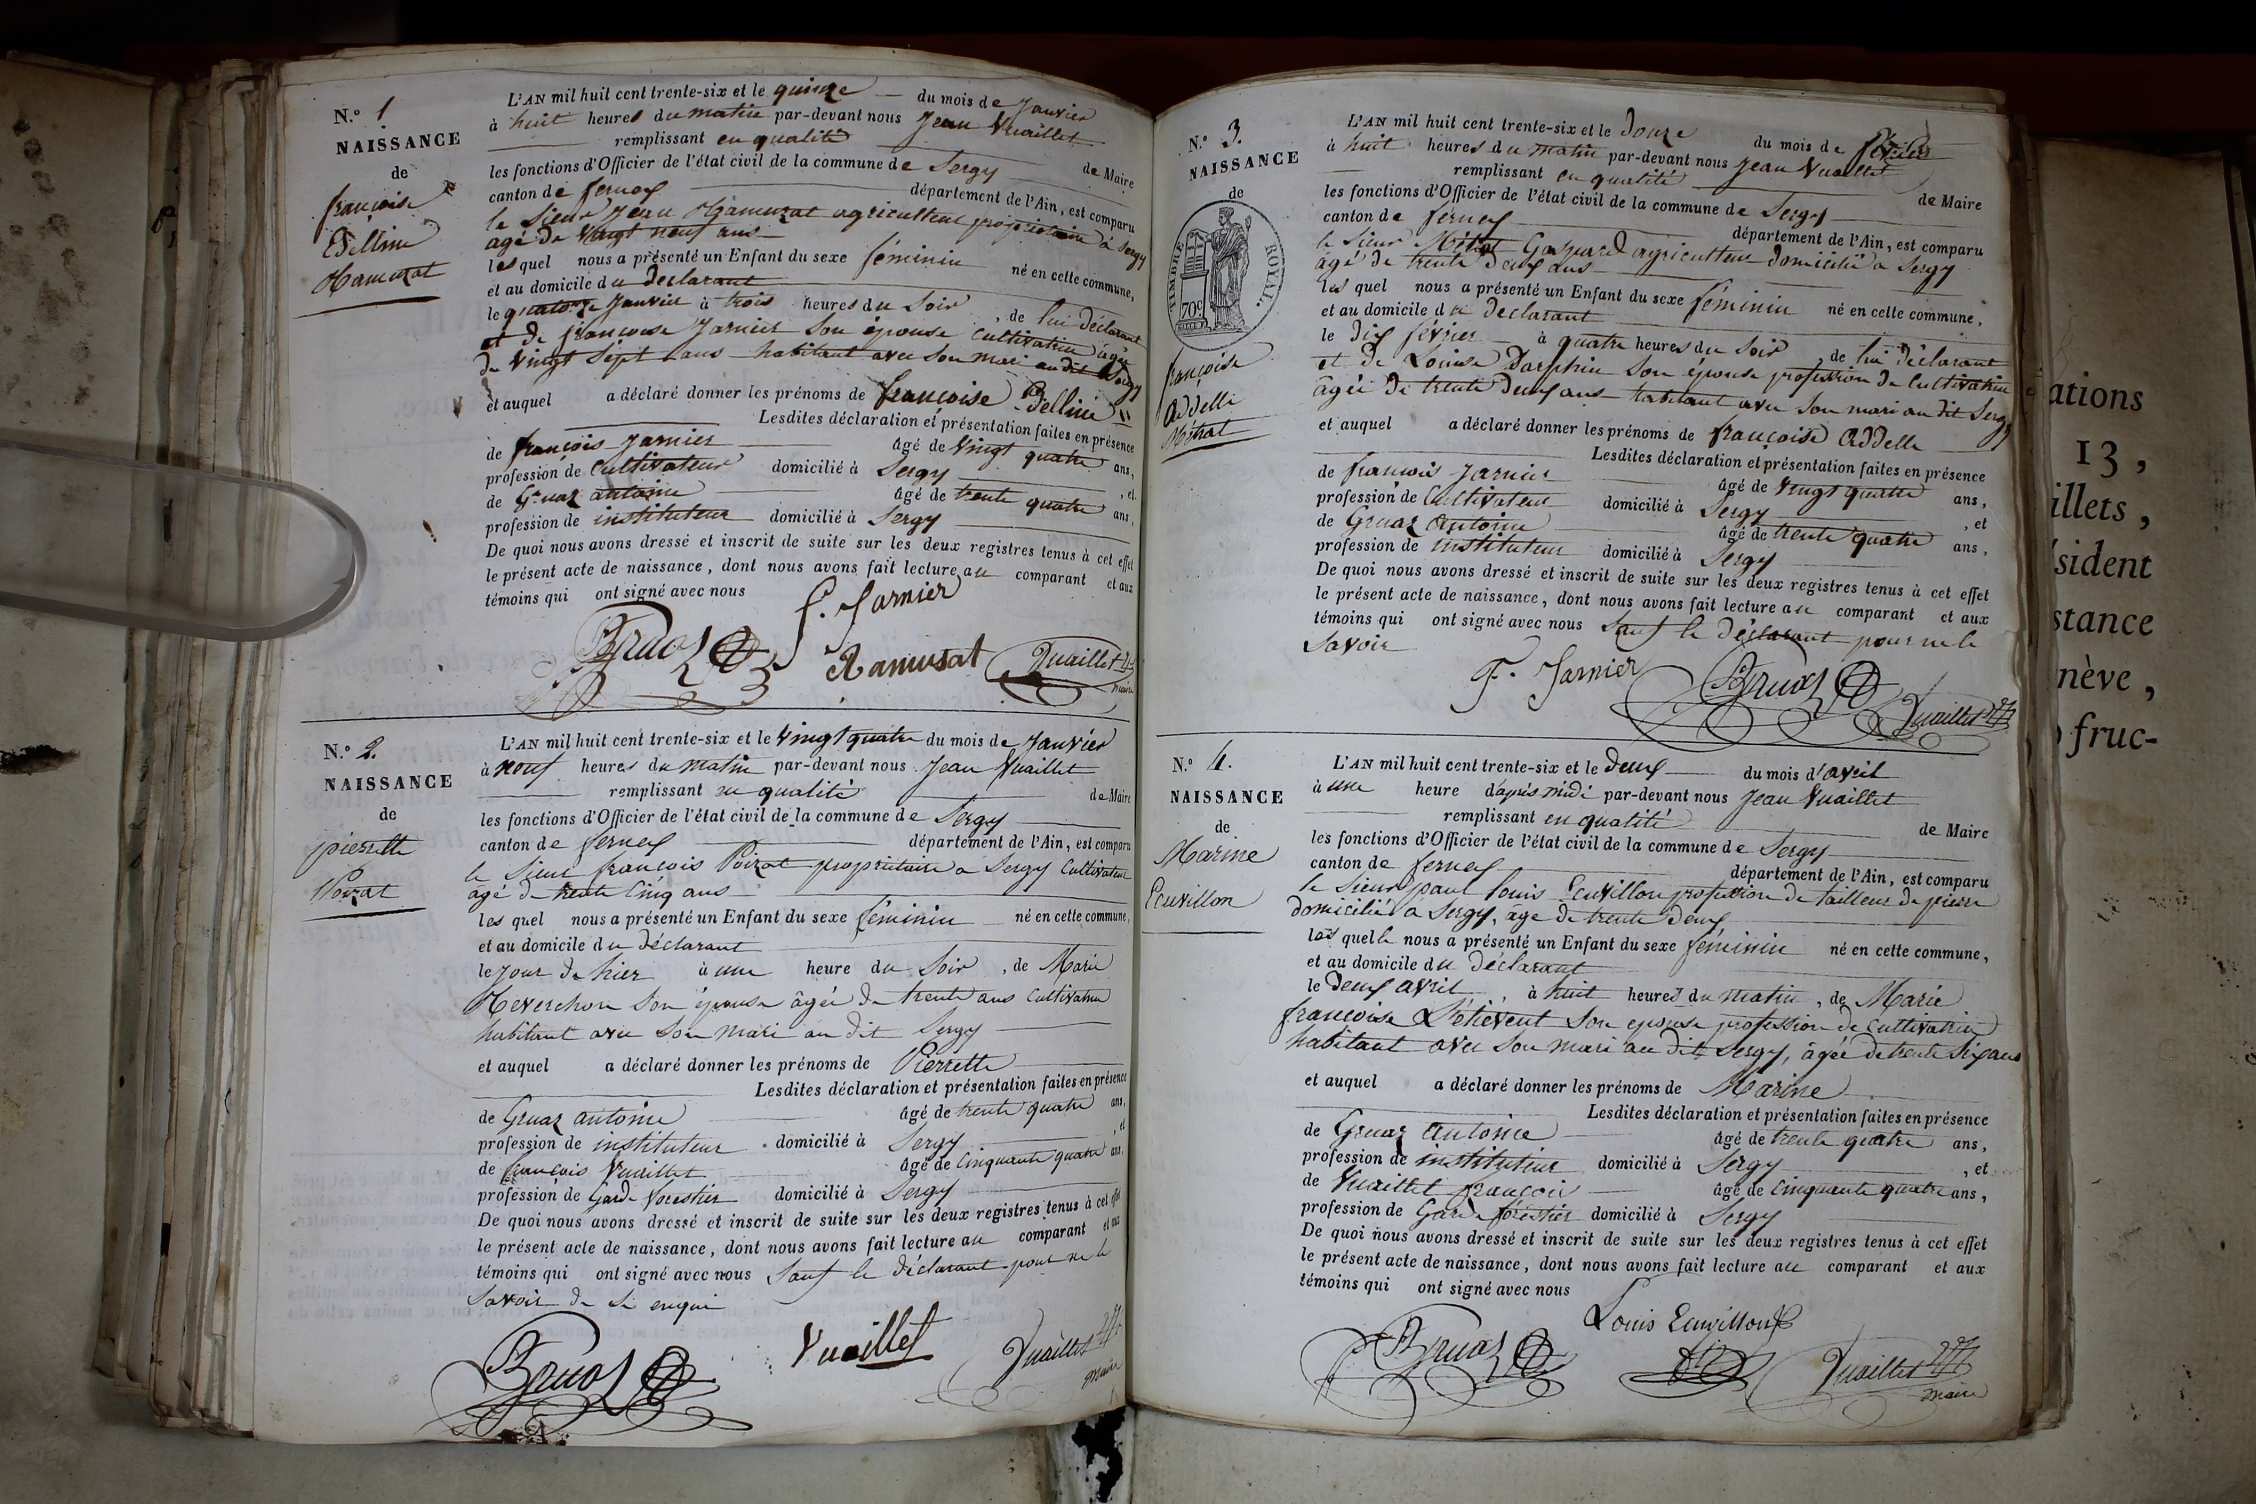 N.º 1
NAISSANCE
de
françoise
Edelline
Ramuzat
L'AN mil huit cent trente-six et le quinze du mois de Janvier
à huit heures du matin par-devant nous Jean Vuaillet
remplissant en qualité de Maire
les fonctions d'Officier de l'état civil de la commune de Sergy
canton de fernex département de l'Ain, est comparu
le Sieur Jean Ramuzat agriculteur propriétaire à Sergy
agé de vingt neuf ans
lesquel nous a présenté un Enfant du sexe féminin né en cette commune,
et au domicile du declarant
le quatorze Janvier à trois heures du Soir, de lui déclarant
et de françoise Jarnier Son épouse cultivatrice âgée
de vingt Sept ans habitant avec Son mari au dit Sergy
et auquel a déclaré donner les prénoms de françoise Edelline
Lesdites déclaration et présentation faites en présence
de françois Jarnier âgé de vingt quatre ans,
profession de Cultivateur domicilié à Sergy, et
de Gruaz antoine âgé de trente quatre ans,
profession de instituteur domicilié à Sergy
De quoi nous avons dressé et inscrit de suite sur les deux registres tenus à cet effet
le présent acte de naissance, dont nous avons fait lecture au comparant et aux
témoins qui ont signé avec nous
F. Jarnier
Gruaz Ramusat Vuaillet
maire
N.º 2.
NAISSANCE
de
pierrette
Poizat
L'AN mil huit cent trente-six et le vingt quatre du mois de Janvier
à neuf heures du matin par-devant nous Jean Vuaillet
remplissant en qualité de Maire
les fonctions d'Officier de l'état civil de la commune de Sergy
canton de fernex département de l'Ain, est comparu
le Sieur françois Poizat propriétaire a Sergy Cultivateur
âgé de trente cinq ans
lesquel nous a présenté un Enfant du sexe féminin né en cette commune,
et au domicile du déclarant
le jour de hier à une heure du Soir, de Marie
Reverchon Son épouse âgée de trente ans Cultivatrice
habitant avec Son mari au dit Sergy
et auquel a déclaré donner les prénoms de Pierrette
Lesdites déclaration et présentation faites en présence
de Gruaz antoine âgé de trente quatre ans,
profession de instituteur domicilié à Sergy, et
de françois Vuaillet âgé de Cinquante quatre ans,
profession de Garde forestier domicilié à Sergy
De quoi nous avons dressé et inscrit de suite sur les deux registres tenus à cet effet
le présent acte de naissance, dont nous avons fait lecture au comparant et aux
témoins qui ont signé avec nous Sauf le déclarant pour ne le
Savoir de ce enquis
Gruaz Vuaillet Vuaillet
maire
N.º 3.
NAISSANCE
de
TIMBRE ROYAL.
70c
françoise
Addelle
Métrat
L'AN mil huit cent trente-six et le douze du mois de février
à huit heures du matin par-devant nous Jean Vuaillet
remplissant en qualité de Maire
les fonctions d'Officier de l'état civil de la commune de Sergy
canton de fernex département de l'Ain, est comparu
le Sieur Métrat Gaspard agriculteur domicilié a Sergy
âgé de trente deux ans
lesquel nous a présenté un Enfant du sexe féminin né en cette commune,
et au domicile du declarant
le dix février à quatre heures du Soir, de lui déclarant
et de Louise Darphin Son épouse profession de Cultivatrice
âgée de trente deux ans habitant avec son mari au dit Sergy
et auquel a déclaré donner les prénoms de françoise Addelle
Lesdites déclaration et présentation faites en présence
de françois Jarnier âgé de vingt quatre ans,
profession de Cultivateur domicilié à Sergy, et
de Gruaz antoine âgé de trente quatre ans,
profession de instituteur domicilié à Sergy
De quoi nous avons dressé et inscrit de suite sur les deux registres tenus à cet effet
le présent acte de naissance, dont nous avons fait lecture au comparant et aux
témoins qui ont signé avec nous Sauf le déclarant pour ne le
Savoir
F. Jarnier Gruaz Vuaillet
N.º 4.
NAISSANCE
de
Marine
Ecuvillon
L'AN mil huit cent trente-six et le deux du mois d'avril
à une heure d'apiès midi par-devant nous Jean Vuaillet
remplissant en qualité de Maire
les fonctions d'Officier de l'état civil de la commune de Sergy
canton de fernex département de l'Ain, est comparu
le Sieur paul louis Ecuvillon profession de tailleur de pierre
domicilié a Sergy, âgé de trente deux
lesquelle nous a présenté un Enfant du sexe féminin né en cette commune,
et au domicile du déclarant
le deux avril, à huit heures du matin, de Marie
françoise L'étievent Son epouse profession de cultivatrice
habitant avec Son mari au dit Sergy, âgée de trente Six ans
et auquel a déclaré donner les prénoms de Marine
Lesdites déclaration et présentation faites en présence
de Gruaz antoine âgé de trente quatre ans,
profession de instituteur domicilié à Sergy, et
de Vuaillet françois âgé de cinquante quatre ans,
profession de Garde forestier domicilié à Sergy
De quoi nous avons dressé et inscrit de suite sur les deux registres tenus à cet effet
le présent acte de naissance, dont nous avons fait lecture au comparant et aux
témoins qui ont signé avec nous
Louis Ecuvillon
Gruaz Vuaillet
maire
ations
13,
illets,
sident
stance
nève,
fruc-